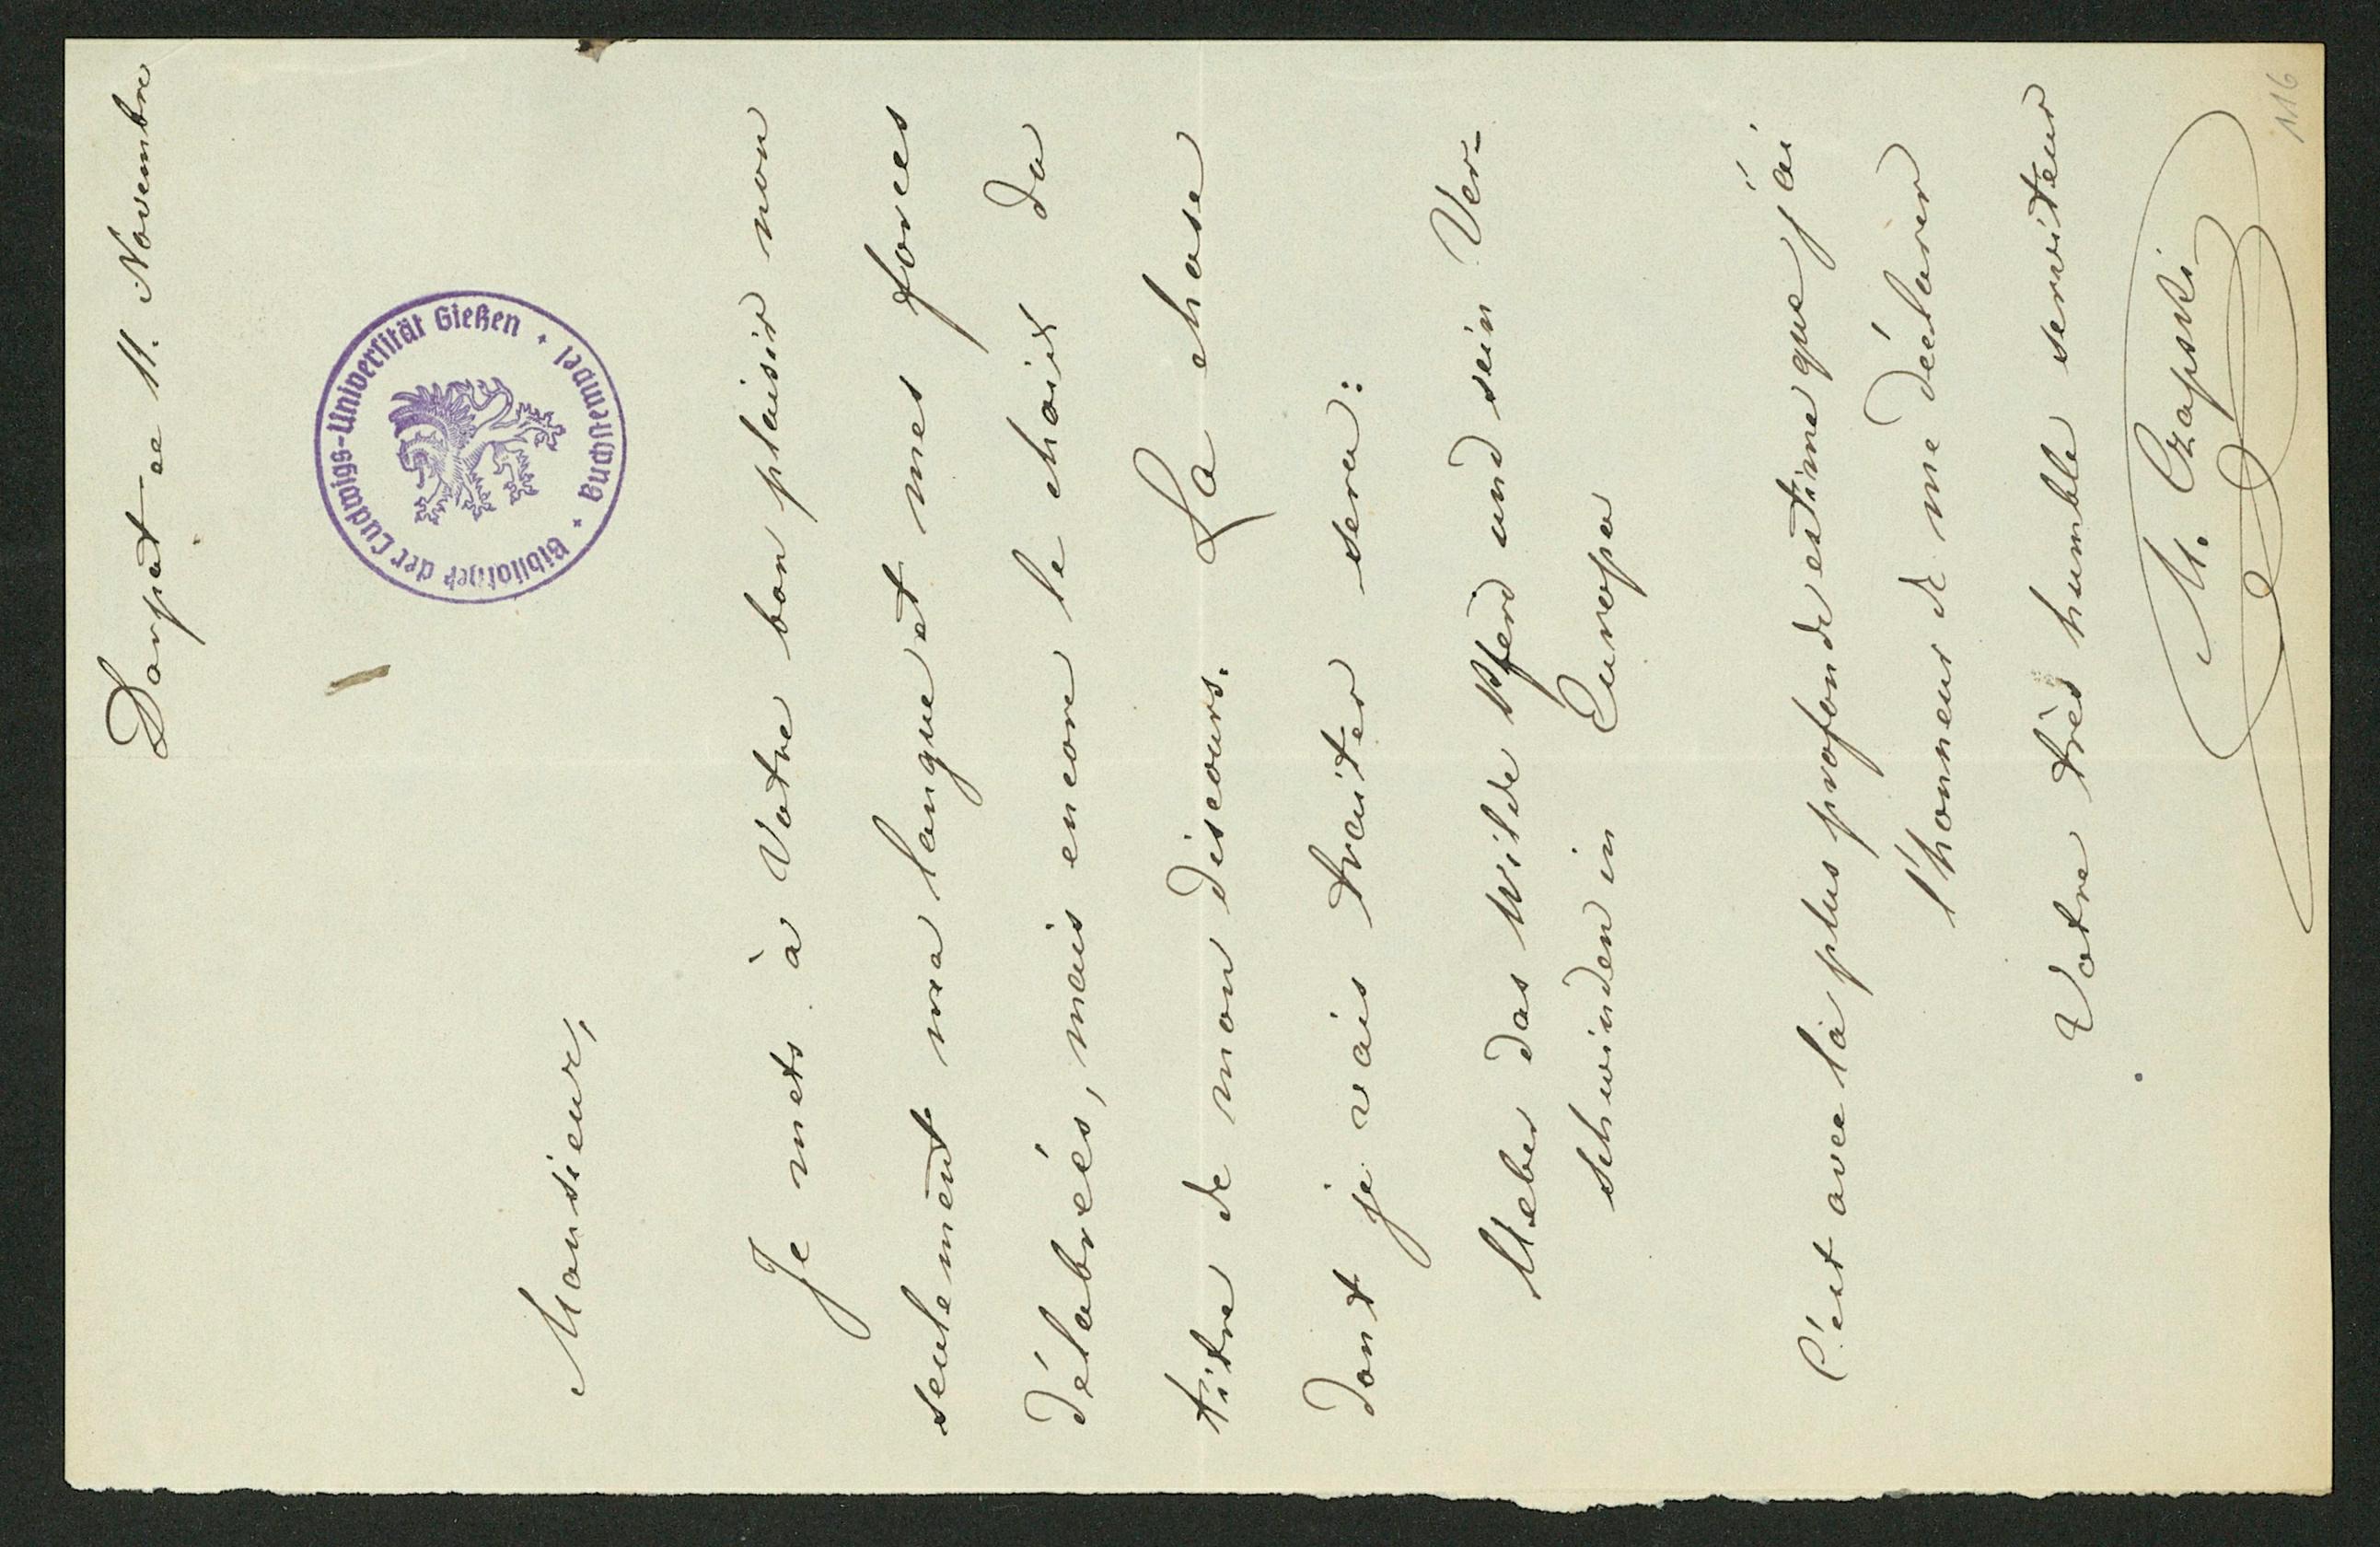 Dorpat ce 11. Novembre
Bibliothek der Ludwigs-Universität Gießen
Buchsemschg
Monsieur,
Je mets à Votre bon plaisir non
seulement ma langue et mes forces
délabreés, mais encore le choix du
titre de mon discours. La chose
dont je vais traiter sera:
Ueber das wilde Pferd und sein Ver=
schwinden in Europa
C'est avec la plus profonde estime que j'ai
l'honneur de me déclarer
Votre très humble serviteur
M. Czapski
116